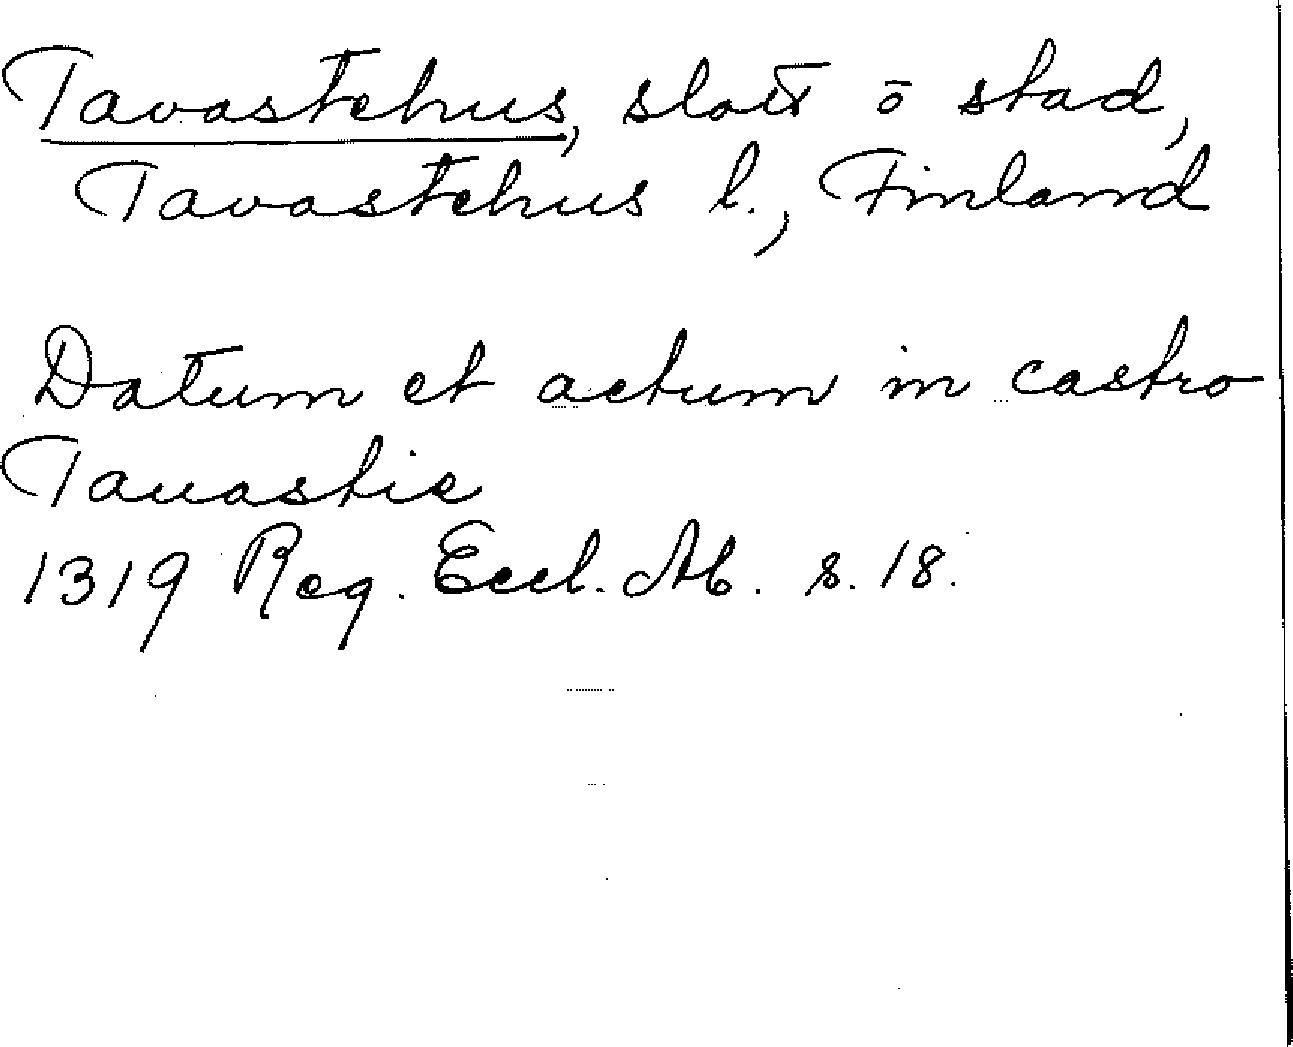 Tavastehus, slott ō stad,
Tavastehus l., Finland
Datum et actum in castro
Tauastie
1319 Reg. Eccl. Ab. s. 18.